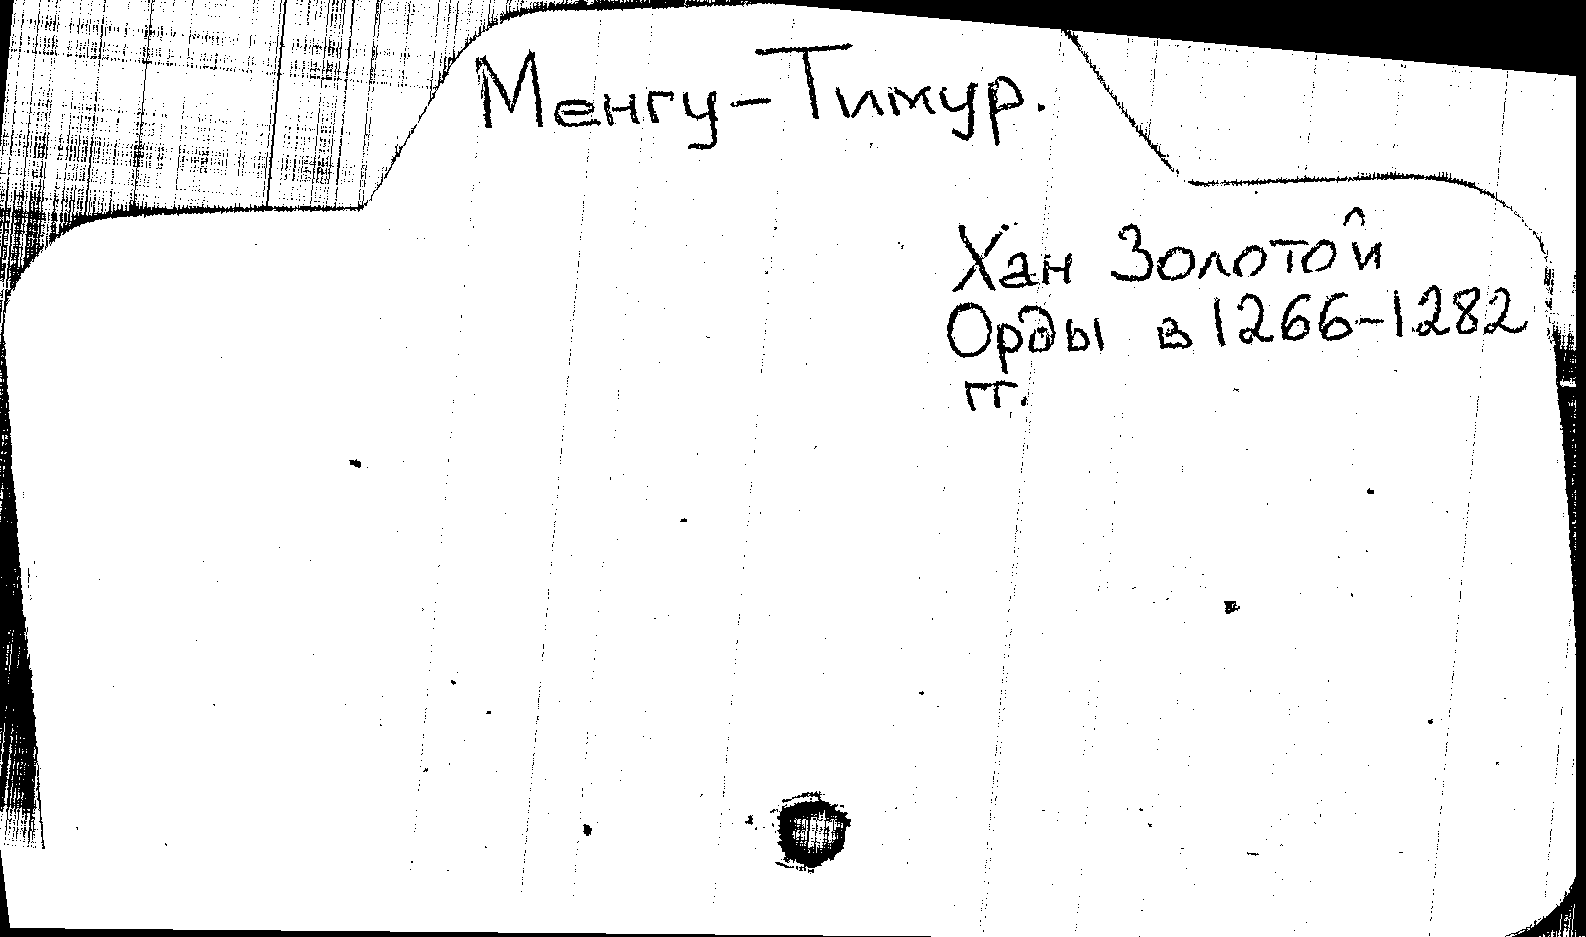 Менгу-Тимур.
Хан Золотой
Орды в 1266-1282
гг.